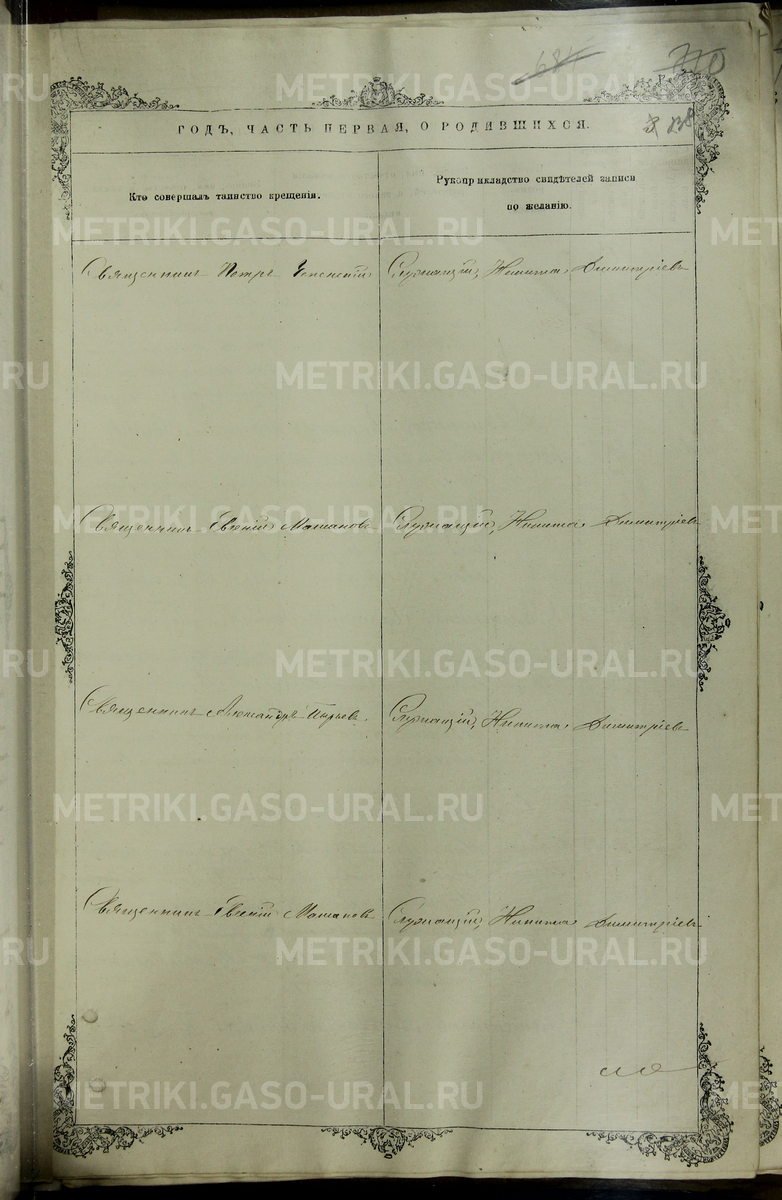 684
770
ГОДЪ, ЧАСТЬ ПЕРВАЯ, О РОДИВШИХСЯ.
Кто совершалъ таинство крещенія.
Рукоприкладство свидѣтелей записи
по желанію.
Священникъ Петръ Успенскій. Служащій, Никита Димитріевъ
Священникъ Евгеній Служащій, Никита Димитріевъ
Священникъ Служащій, Никита Димитріевъ
Священникъ Евгеній Служащій, Никита Димитріевъ
METRIKI.GASO-URAL.RU